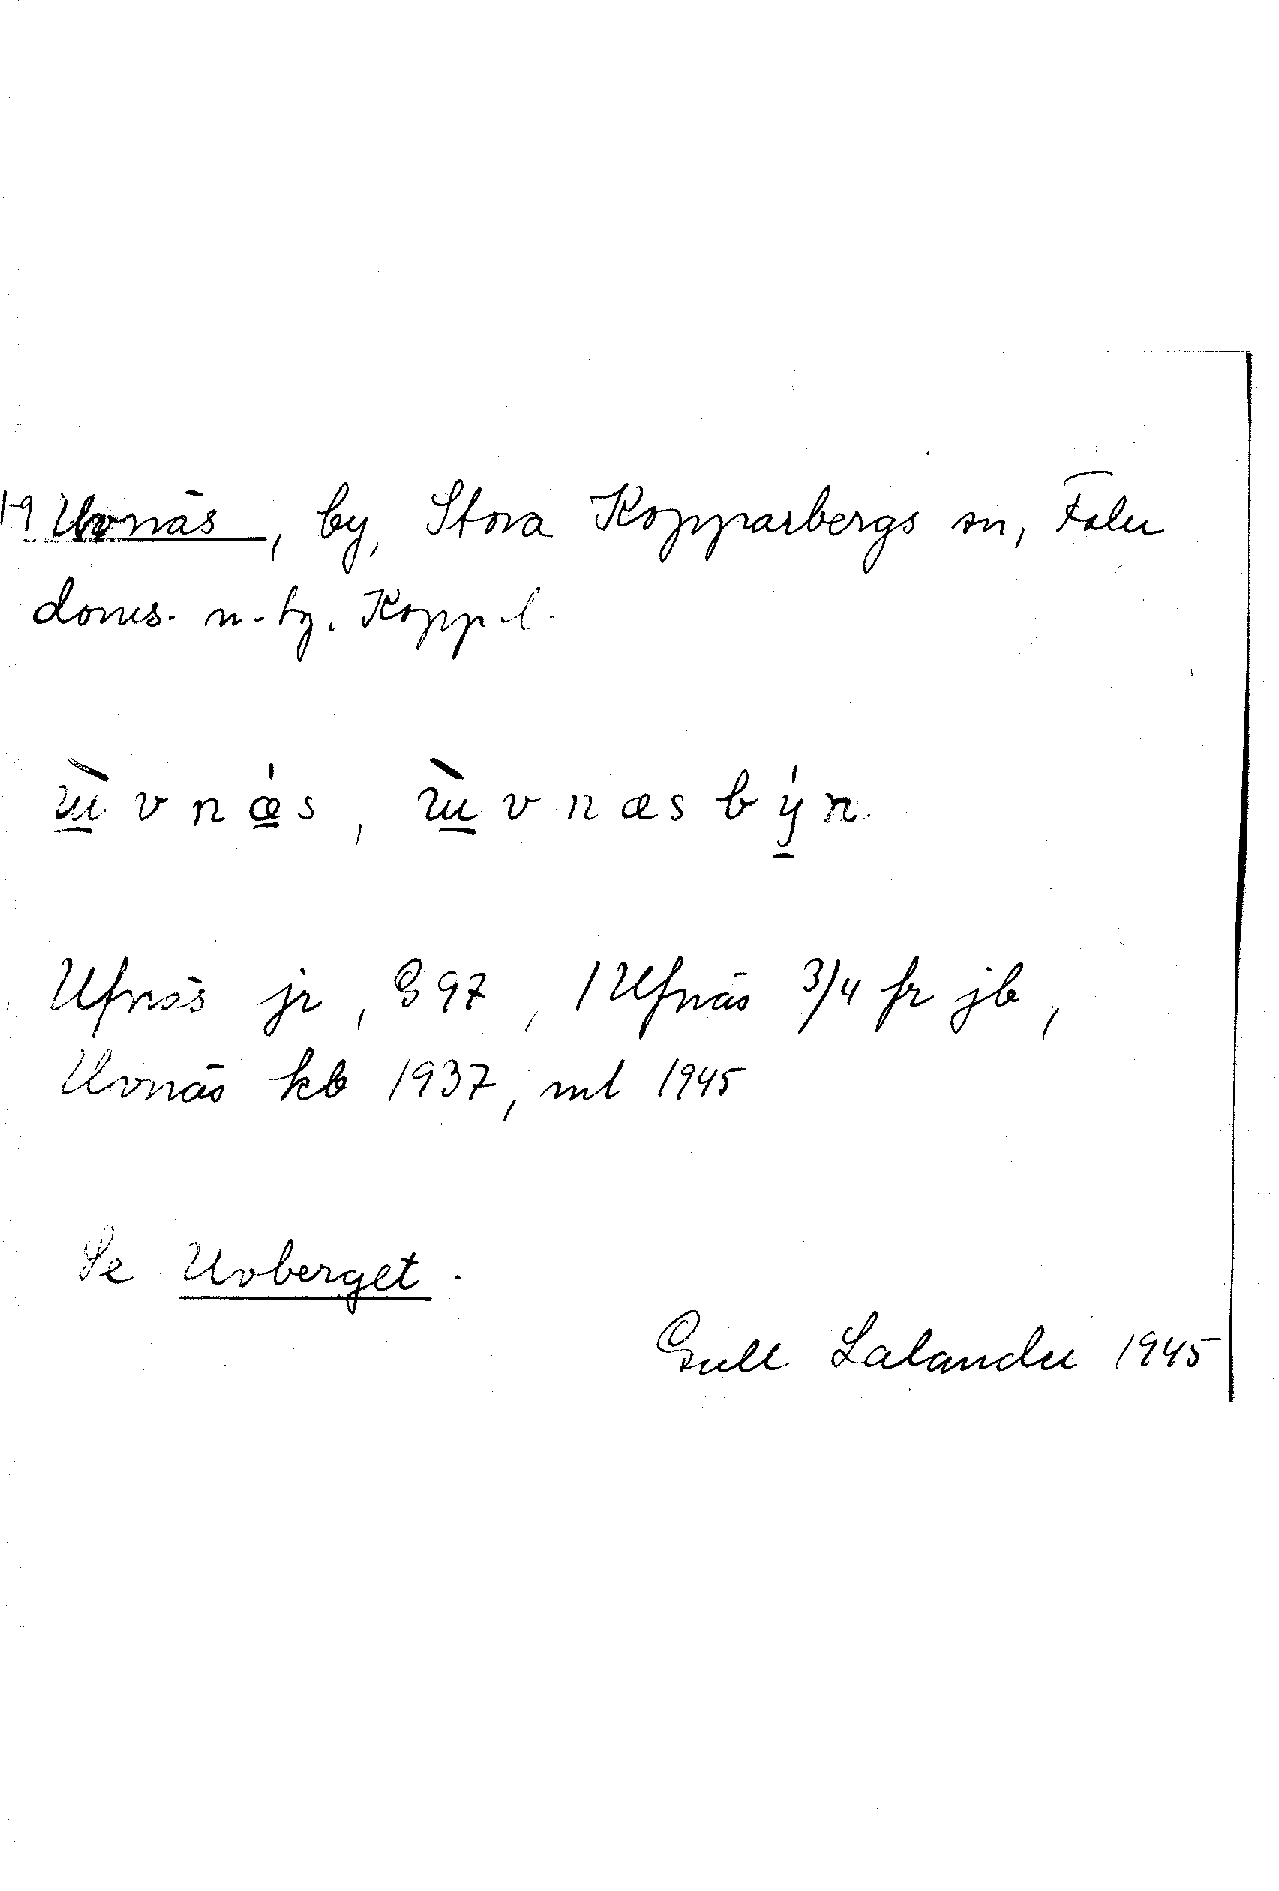 19 Uvnäs, by, Stora Kopparbergs sn, Falu
doms. n. tg. Kopp. l.
ùvnǽs, ùvnæsbýn.
Ufnäs jr, G 97, 1 Ufnäs 3/4 fr jb,
Uvnäs kb 1937, ml 1945
Se Uvberget.
Gull Lalander 1945